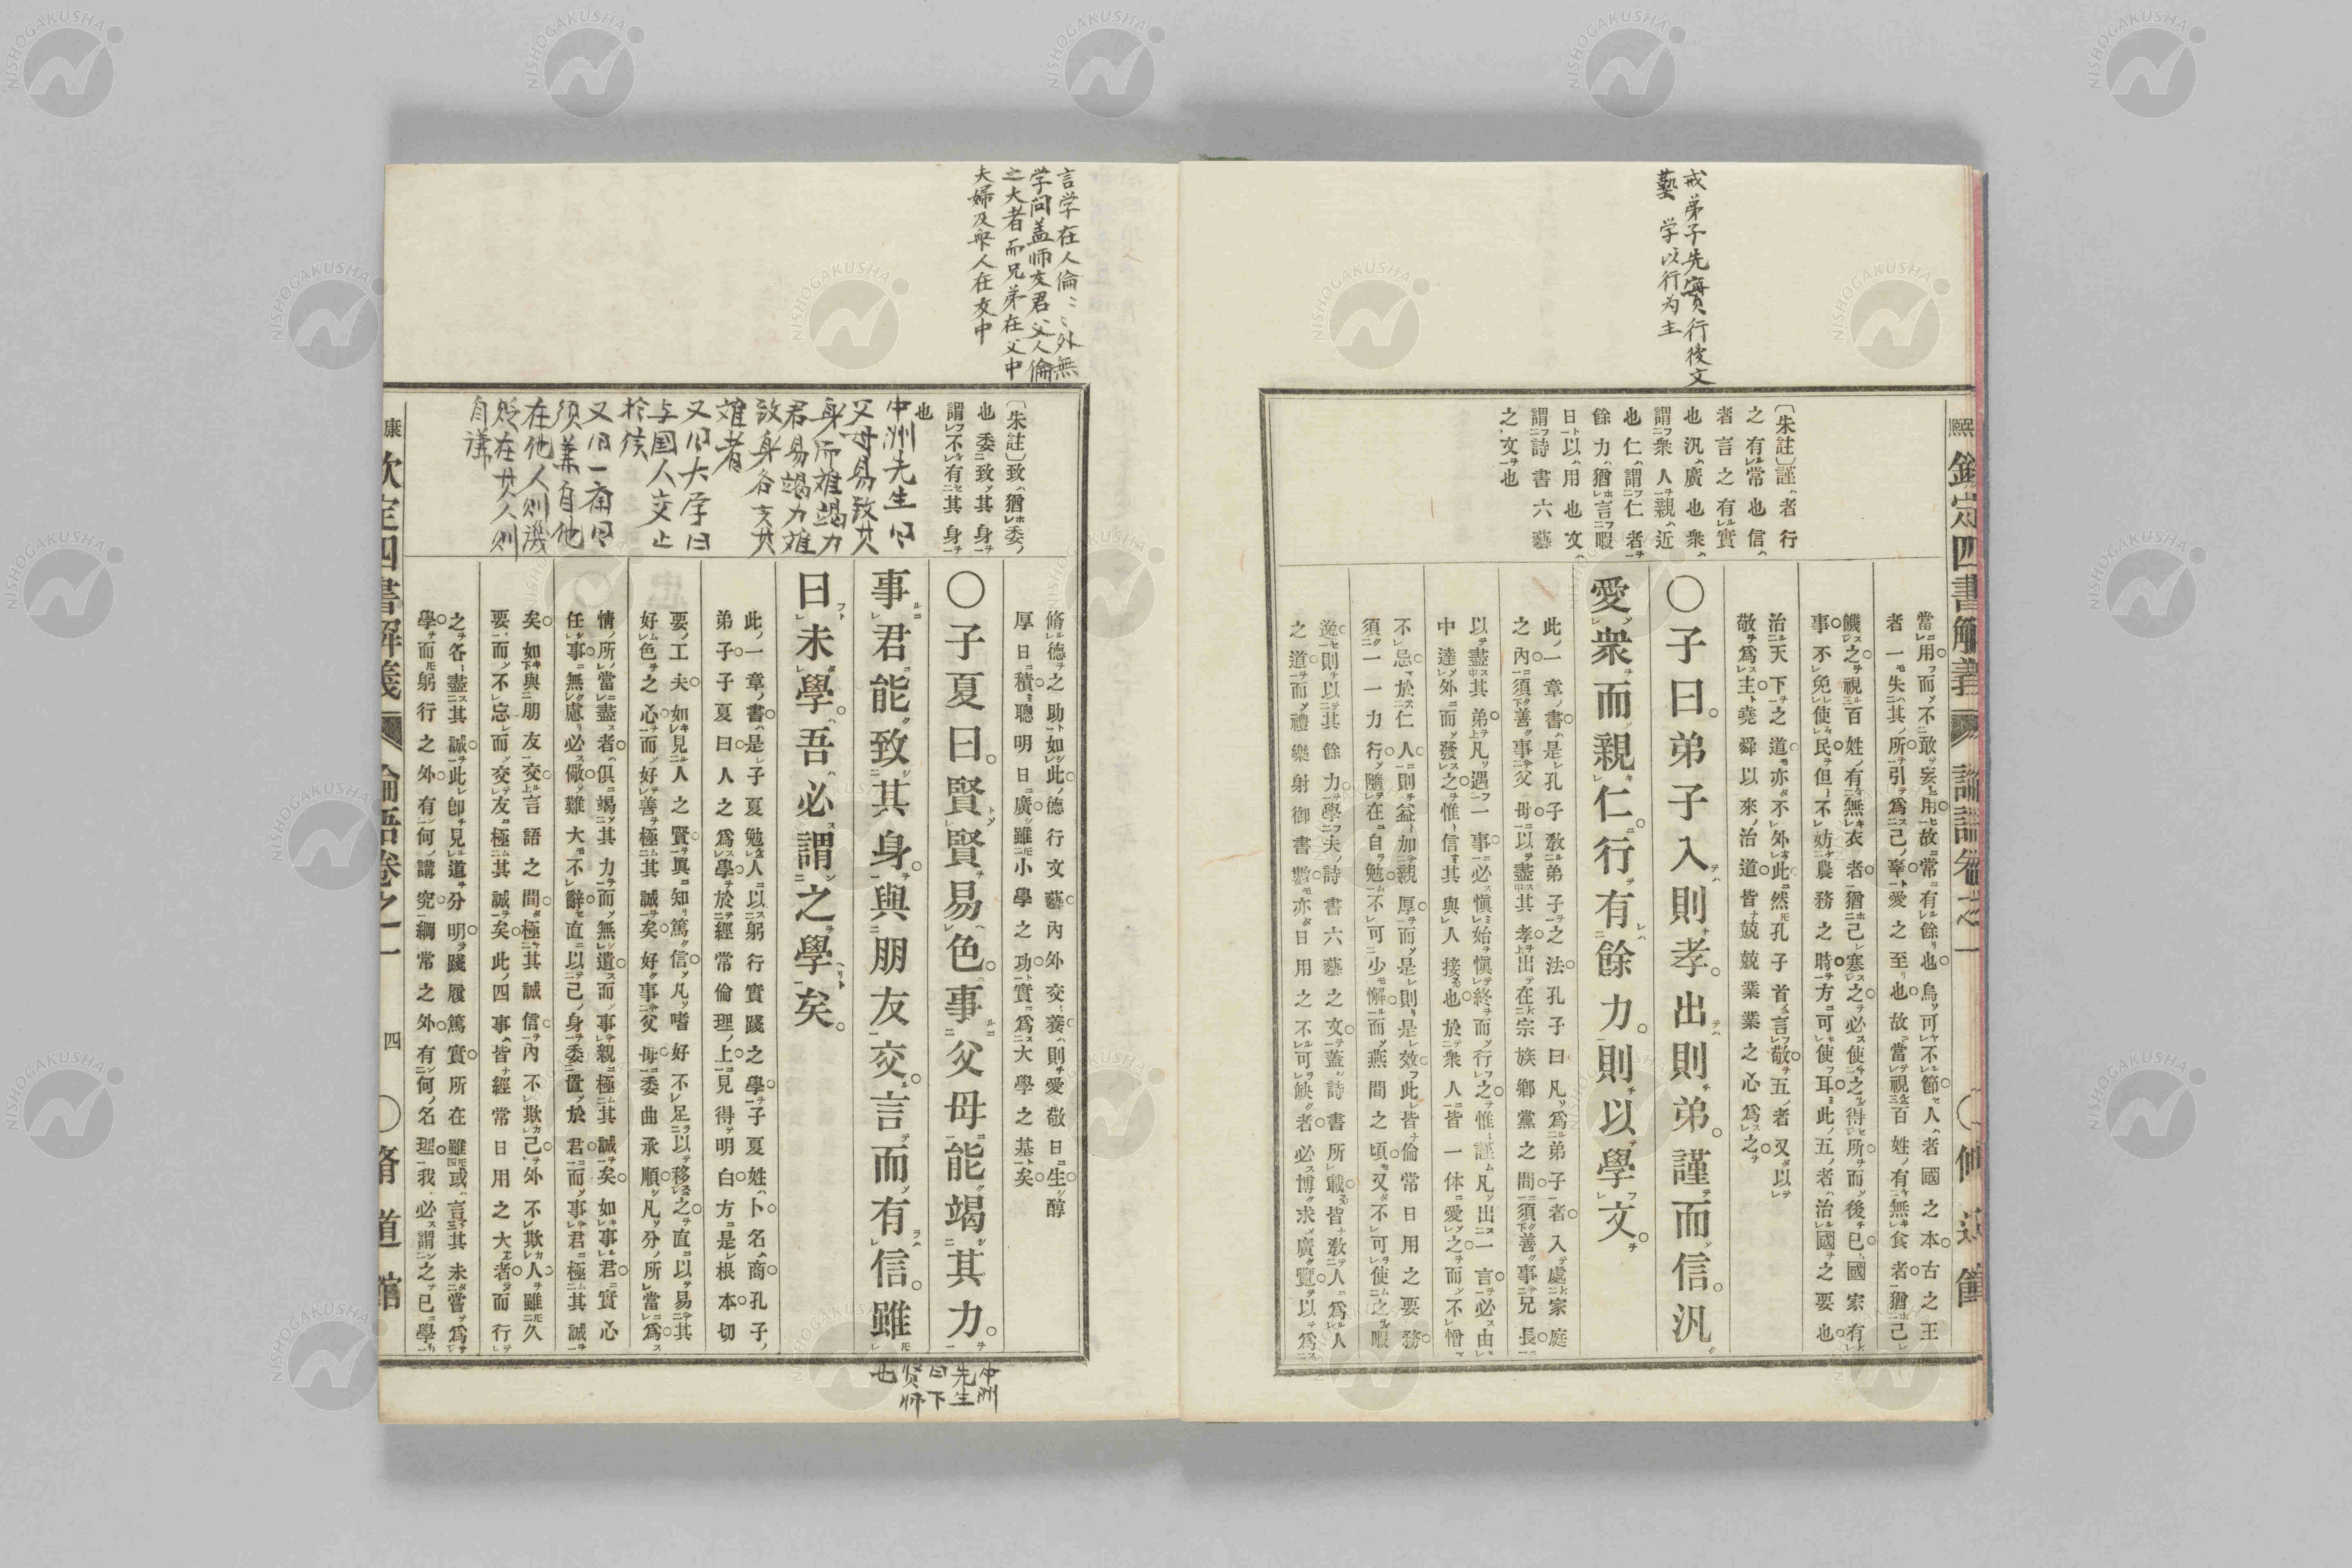 戒弟子先實行後文
藝 学以行为主
〔朱註〕謹者行
之有常也信
者言之有實
也汎廣也衆
謂衆人親近
也仁謂仁者
餘力猶言暇
日以用也文
謂詩書六藝
之文也
當用而不敢妄用故常有餘也烏可不節人者國之本古之王
者一失其所引爲己辜愛之至也故當視百姓有無食者猶己
饑之視百姓有無衣者猶己寒之必使之得所而後已國家有
事不免使民但不妨農務之時方可使耳此五者治國之要也
治天下之道亦不外此然孔子首言敬五者又以
敬爲主堯舜以來治道皆兢兢業業之心爲之
〇子曰弟子入則孝出則弟謹而信汎
愛衆而親仁行有餘力則以學文
此一章書是孔子敎弟子之法孔子曰凡爲弟子者入處家庭
之內須善事父母以盡其孝出在宗族鄉黨之間須善事兄長
以盡其弟凡遇一事必愼始愼終而行之惟謹凡出一言必由
中達外而發之惟信其與人接也於衆人皆一体愛之而不憎
不忌於仁人則益加親厚而是則是效此皆倫常日用之要務
須一一力行隨在自勉不可少懈而燕間之頃又不可使之暇
逸則以其餘力學夫詩書六藝之文蓋詩書所載皆敎人爲人
之道而禮樂射御書數亦日用之不可缺者必博求廣覽以爲
熙
欽定四書解義
論語卷之一
〇脩道館
言学在人倫〻〻外無
学问盖师友君父人倫
之大者而兄弟在父中
夫婦及衆人在友中
〔朱註〕致猶委
也委致其身
謂不有其身
也
中洲先生曰
父母易致其
身而难竭力
君易竭力难
致身各言其
难者
又曰大学曰
与国人交止
於信
又曰一斎曰
须兼自他
在他人则
贬在其人则
自謙
脩德之助如此德行文藝內外交養則愛敬日生醇
厚日積聰明日廣雖小學之功實爲大學之基矣
〇子夏曰賢賢易色事父母能竭其力
事君能致其身與朋友交言而有信雖
曰未學吾必謂之學矣
此一章書是子夏勉人以躬行實踐之學子夏姓卜名商孔子
弟子子夏曰人之爲學於經常倫理上見得明白方是根本切
要工夫如見人之賢眞知篤信凡嗜好不足以移之直以易其
好色之心而好善極其誠矣好事父母委曲承順凡分所當爲
情所當盡者俱竭其力而無遺而事親極其誠矣如事君實心
任事無慮必儆難大不辭直以己身委置於君而事君極其誠
矣如與朋友交言語之間極其誠信內不欺己外不欺人雖久
要而不忘而交友極其誠矣此四事皆經常日用之大者而行
之各盡其誠此卽見道分明踐履篤實所在雖或言其未嘗爲
學而躬行之外有何講究綱常之外有何名理我必謂之已學
康
欽定四書解義
論語卷之一
四
〇脩道館
中洲
先生
曰下
贤师
也